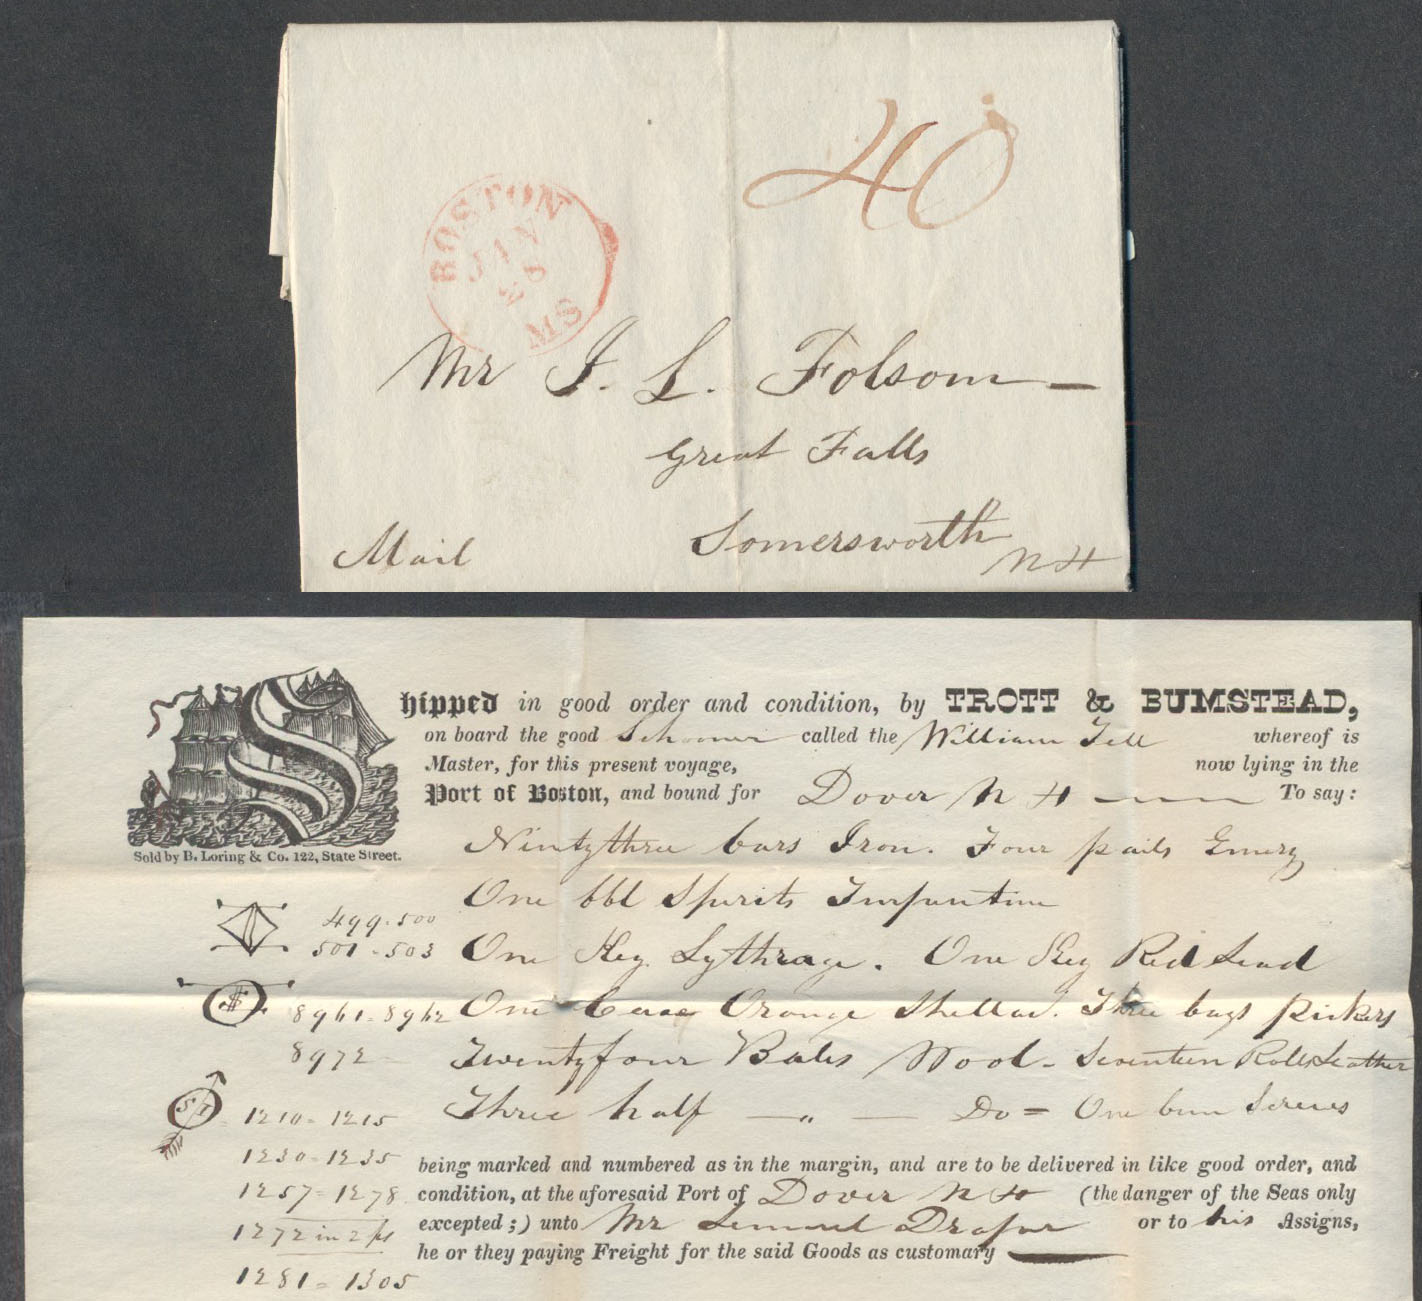 40
BOSTON
JAN
28
MS
Mr J. L. Folsom
Great Falls
Somersworth
N H
Mail
Shipped in good order and condition, by TROTT & BUMSTEAD,
on board the good Schooner called the William Tell whereof is
Master, for this present voyage, now lying in the
Port of Boston, and bound for Dover N H To say:
Sold by B. Loring & Co. 122, State Street.
Ninty three bars Iron. Four pails Emery
One bbl Spirits Turpentine
499-500
501-503
One Keg Lythrage. One Keg Red Lead
$
8961-8962
One Case Orange Shellac. Three bags Pickers
8972
Twentyfour Bales Wool - Seventeen Rolls Leather
1210-1215
Three half — " — Do = One Screws
1230-1235
being marked and numbered as in the margin, and are to be delivered in like good order, and
1257-1278
condition, at the aforesaid Port of Dover N H (the danger of the Seas only
1272 in 2 ps
excepted;) unto Mr Lemuel Draper or to his Assigns,
he or they paying Freight for the said Goods as customary
1281-1305